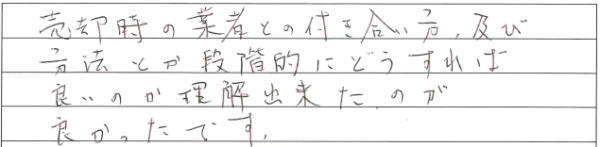 売却時の業者との付き合い方、及び
方法とか段階的にどうすれば
良いのか理解出来たのが
良かったです。